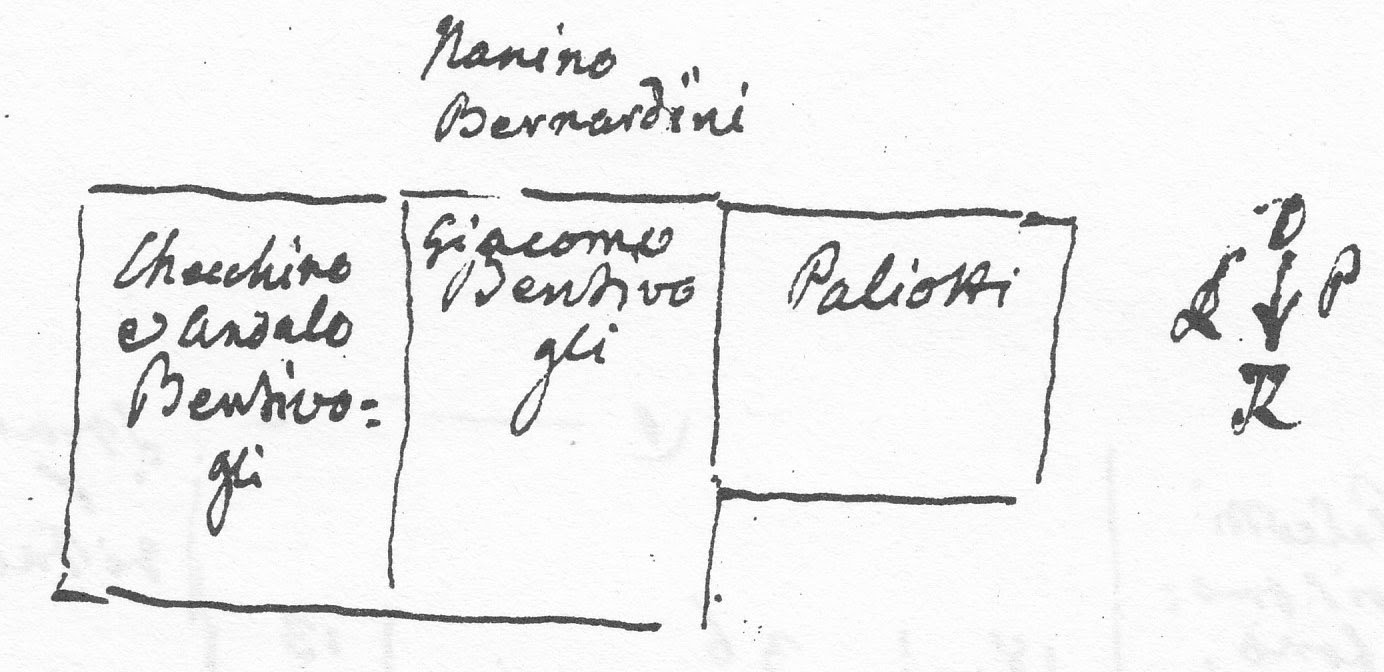 Nanino
Bernardini
Chechino
e Andalo
Bentivo=
gli
Giacomo
Bentivo
gli
Paliotti
P